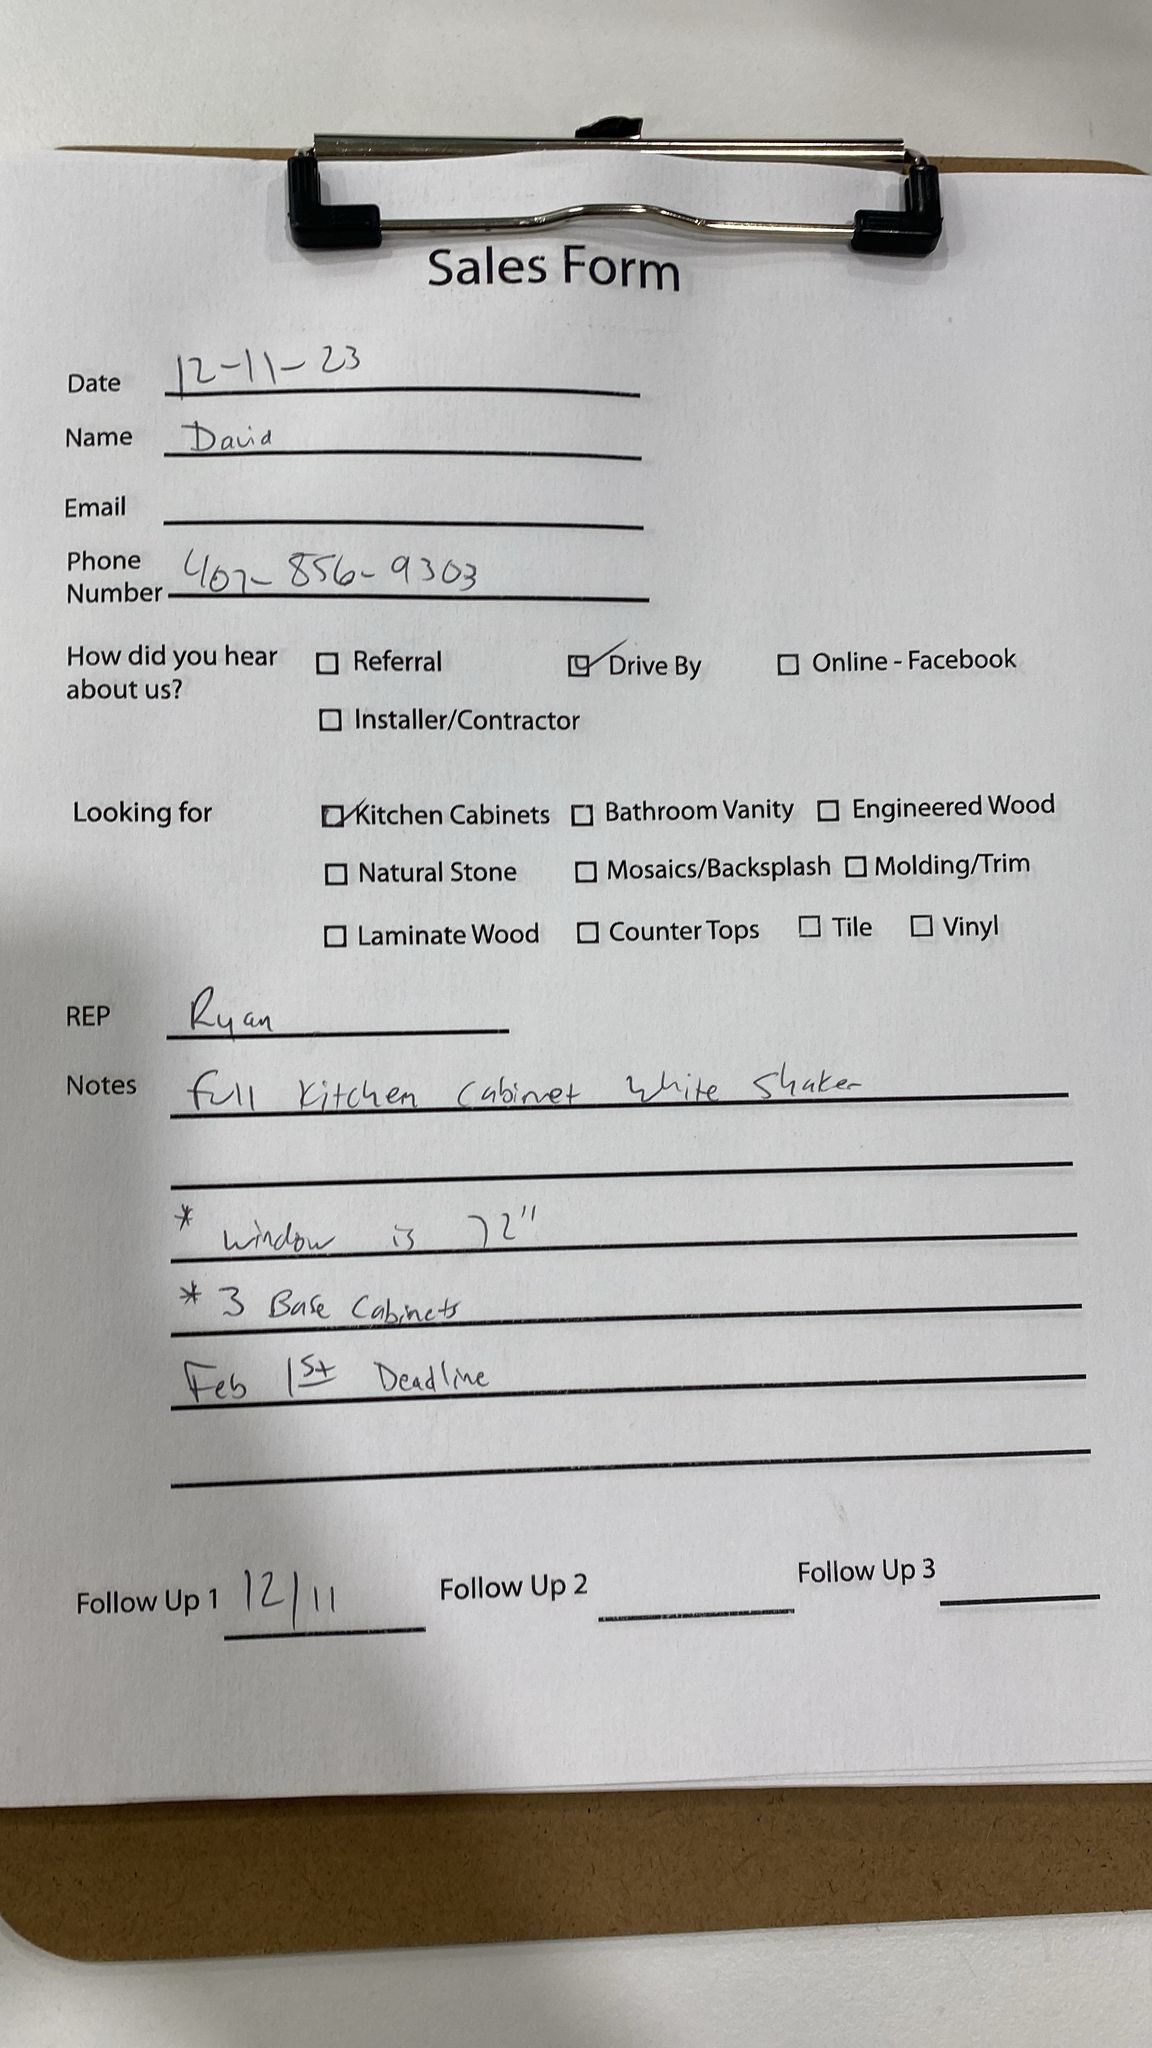 Sales Form
Date 12-11-23
Name David
Email
Phone
Number 407-856-9303
How did you hear
about us?
Referral Drive By Online - Facebook
Installer/Contractor
Looking for Kitchen Cabinets Bathroom Vanity Engineered Wood
Natural Stone Mosaics/Backsplash Molding/Trim
Laminate Wood Counter Tops Tile Vinyl
REP Ryan
Notes full Kitchen Cabinet White Shaker
* window is 72"
* 3 Base Cabinets
Feb 1st Deadline
Follow Up 1 12/11 Follow Up 2 Follow Up 3